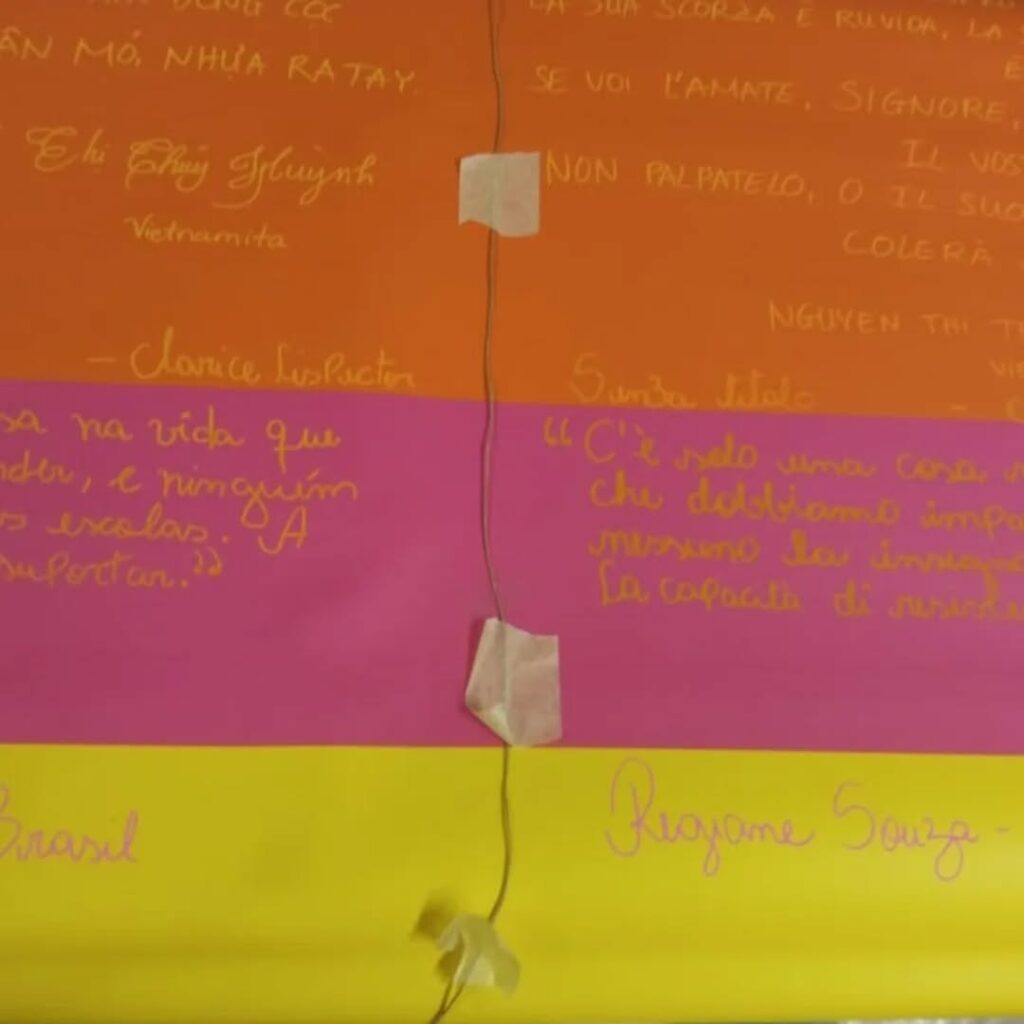 ÂN MÓ, NHỰA RA TAY
Thị Thúy Huỳnh
Vietnamita
- Clarice Lispector
sa na vida que
nder, e ninguém
s escolas. A
suportar."
Brasil
LA SUA SCORZA È RUVIDA, LA S
SE VOI L'AMATE, SIGNORE,
IL VOS
NON PALPATELO, O IL SUO
COLERÀ
NGUYEN THI T
VIE
Senza titolo
"C'è solo una cosa
che dobbiamo impa
nessuno la insegna
La capacità di resiste
Regiane Souza -